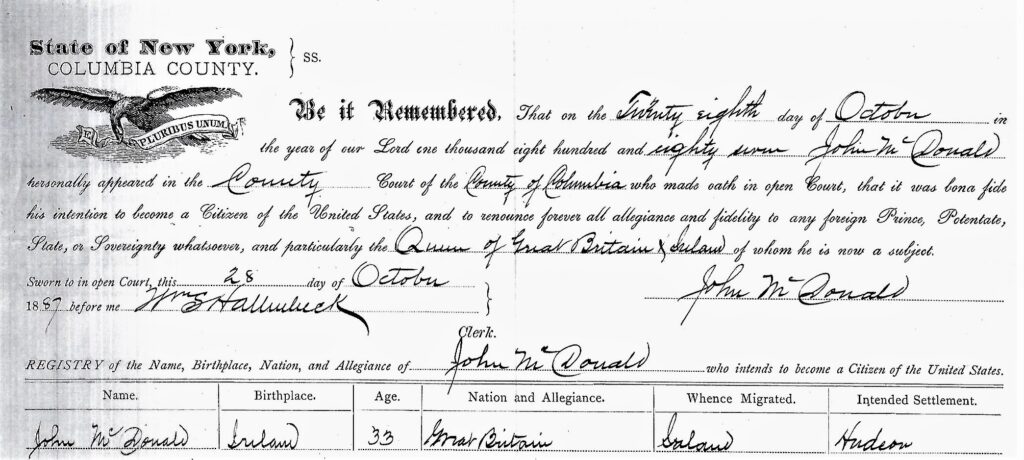 State of New York,
COLUMBIA COUNTY.
} SS.
E PLURIBUS UNUM
Be it Remembered, That on the Twenty eighth day of October in
the year of our Lord one thousand eight hundred and eighty seven John Mc Donald
personally appeared in the County Court of the County of Columbia who made oath in open Court, that it was bona fide
his intention to become a Citizen of the United States, and to renounce forever all allegiance and fidelity to any foreign Prince, Potentate,
State, or Sovereignty whatsoever, and particularly the Queen of Great Britain & Ireland of whom he is now a subject.
Sworn to in open Court, this 28 day of October
1887 before me Wm S Hallenbeck } John Mc Donald
Clerk.
REGISTRY of the Name, Birthplace, Nation, and Allegiance of John Mc Donald who intends to become a Citizen of the United States.
Name. Birthplace. Age. Nation and Allegiance. Whence Migrated. Intended Settlement.
John Mc Donald Ireland 33 Great Britain Ireland Hudson